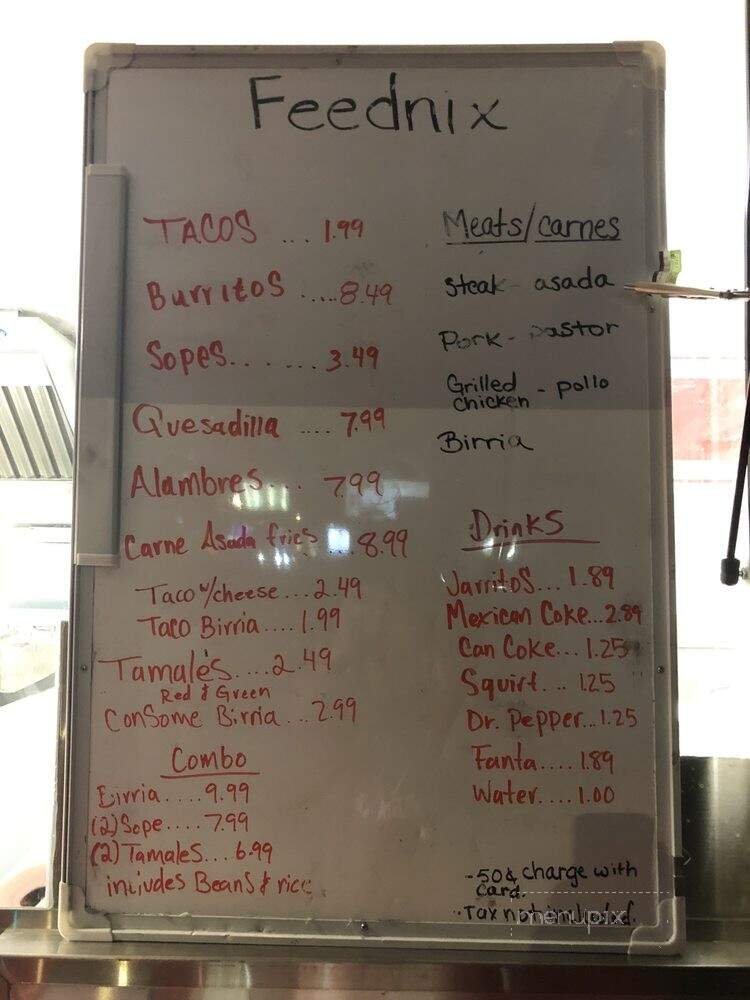 Feednix
TACOS ... 1.99
Burritos .....8.49
Sopes....... 3.49
Quesadilla .... 7.99
Alambres.... 7.99
Carne Asada fries ...8.99
Taco w/cheese...2.49
Taco Birria.... 1.99
Tamales....2.49
Red & Green
Consome Birria...2.99
Combo
Birria....9.99
(2) Sope....7.99
(2) Tamales...6.99
includes Beans & rice
Meats/carnes
steak - asada
Pork - pastor
Grilled chicken - pollo
Birria
Drinks
Jarritos... 1.89
Mexican Coke...2.89
Can Coke... 1.25
Squirt... 1.25
Dr. Pepper...1.25
Fanta.... 1.89
Water.... 1.00
-50¢ charge with
Card.
·Tax not included.
menupix